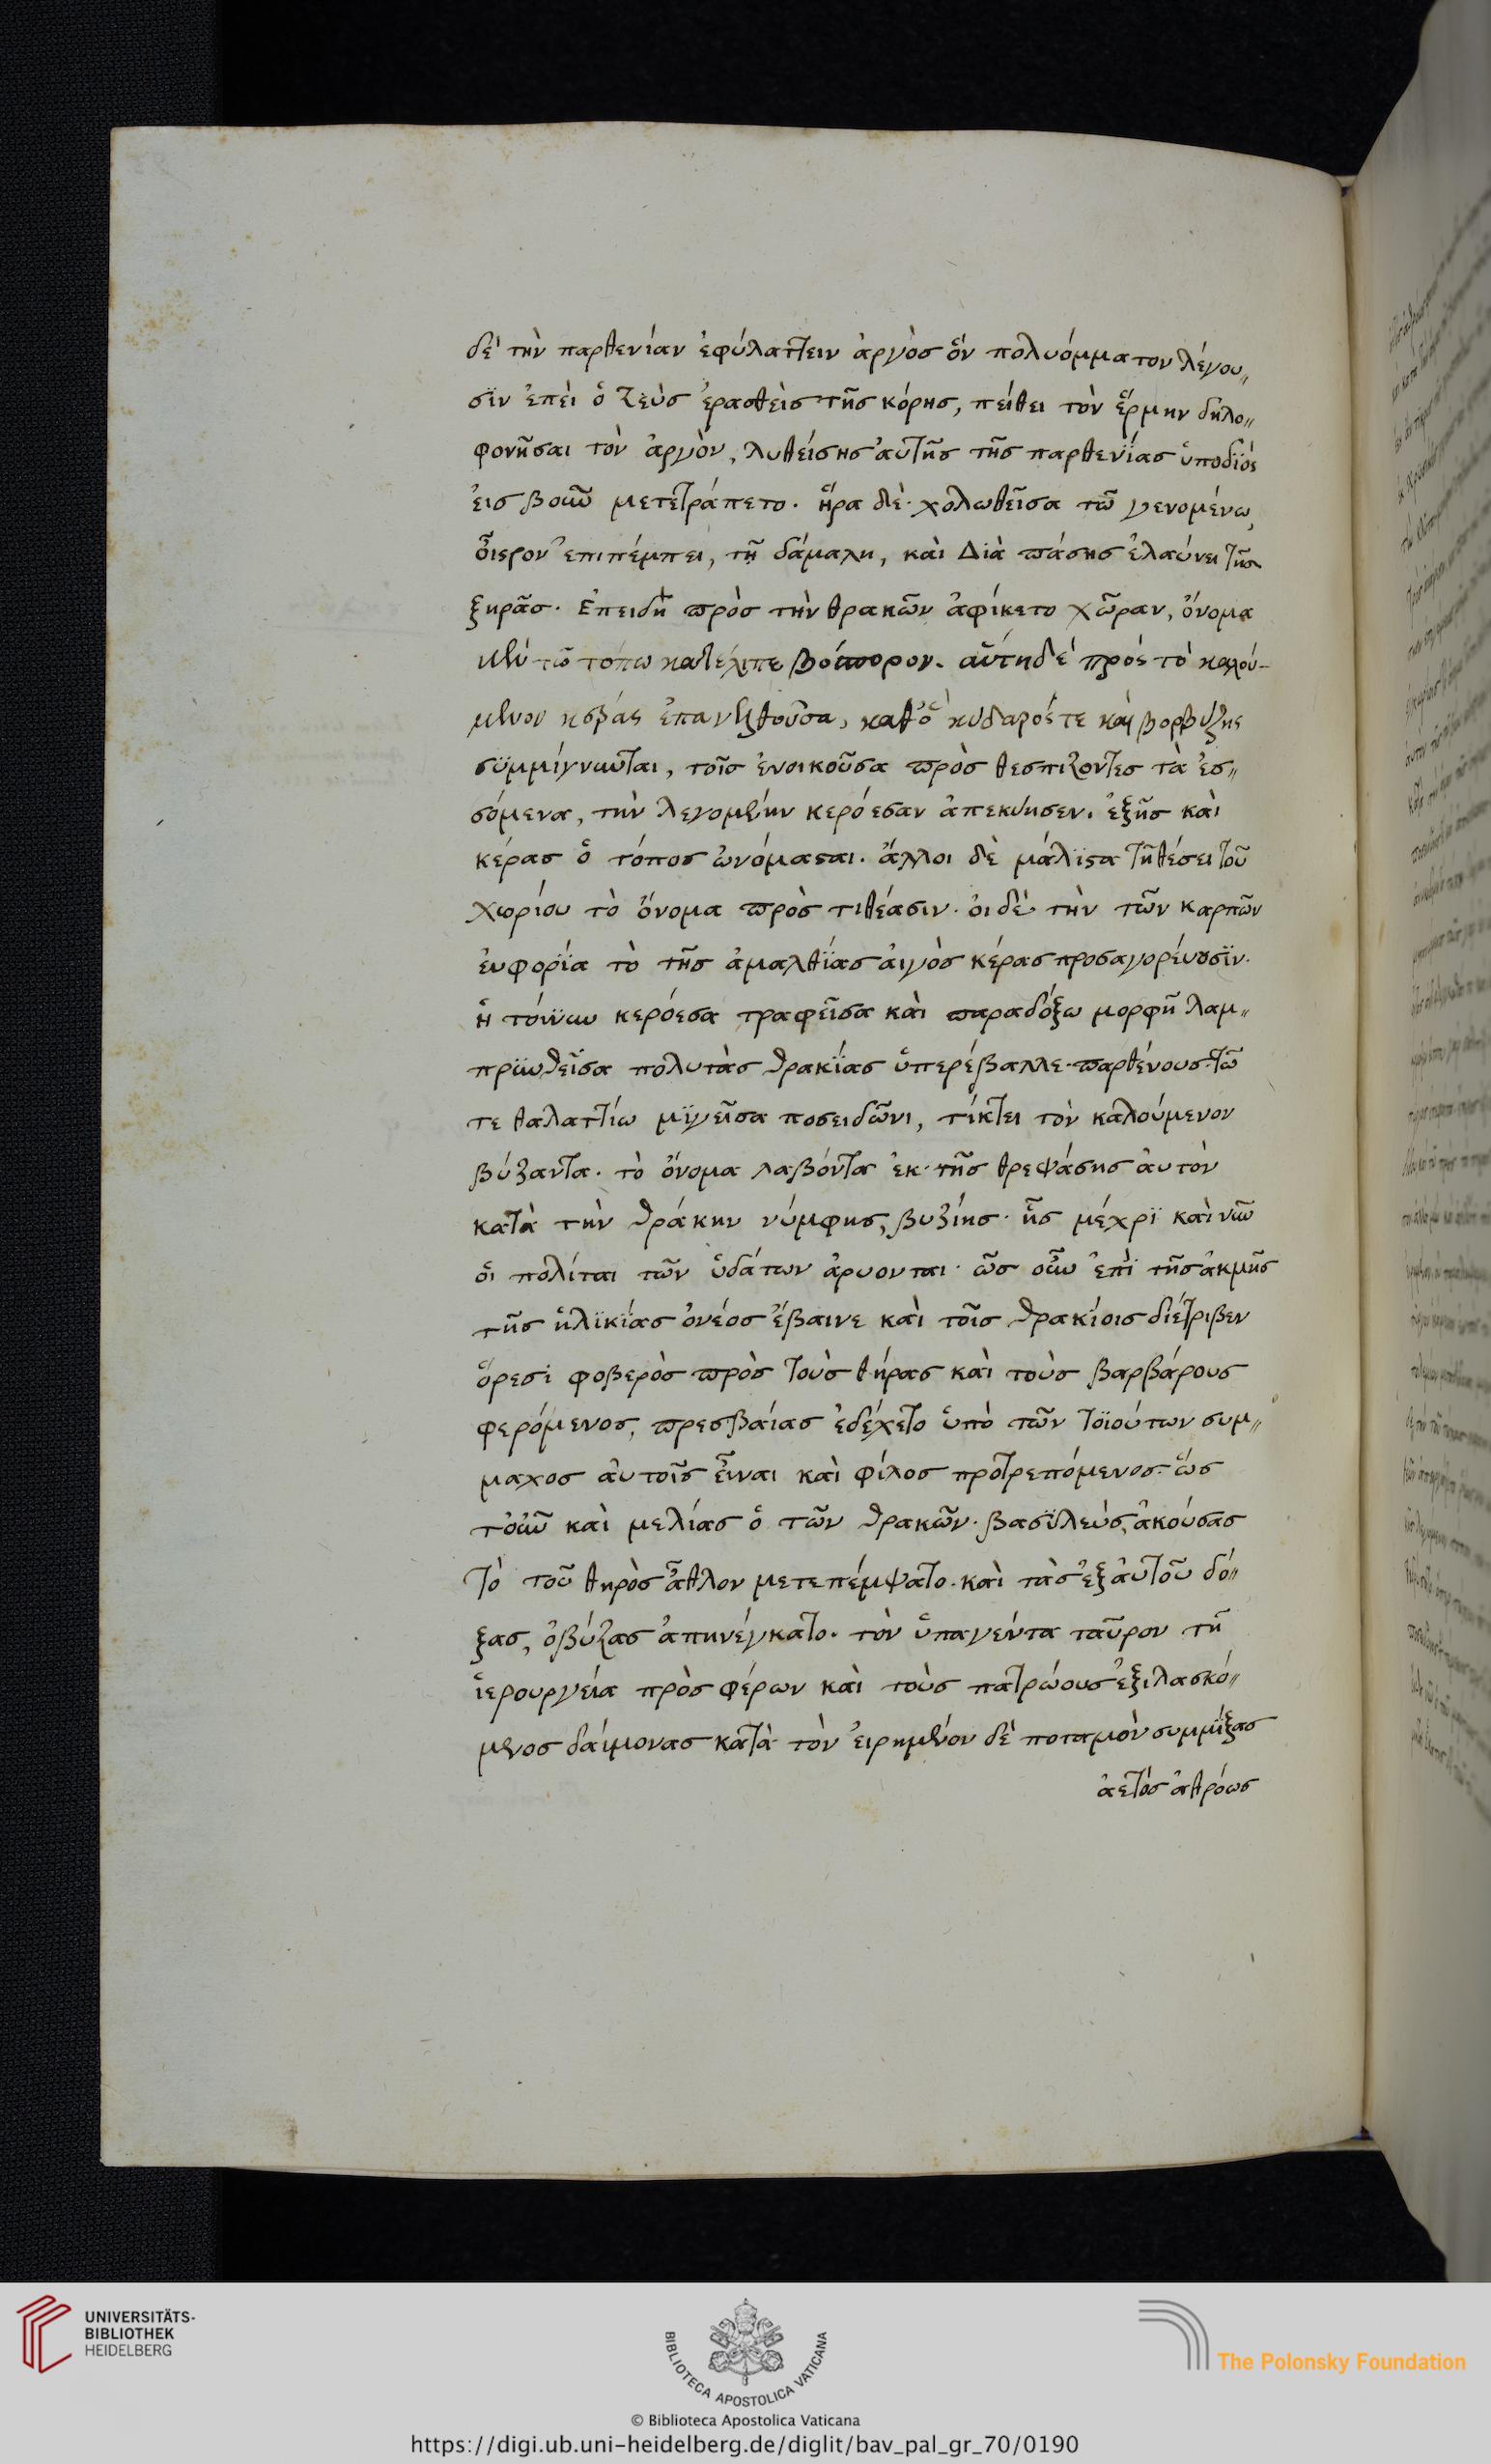 δὲ τὴν παρθενίαν ἐφύλαττειν ἀργὸσ ὅν πολυόμματον λέγου〃
σϊν ἐπεὶ ὁ ζεὺσ ἐρασθεὶσ τῆσ κόρησ, πείθει τὸν ἕρμην δηλο〃
φονῆσαι τὸν ἀργὸν, λυθείσησ αὐτῆσ τῆσ παρθενΐασ ὑποδϊὸς
ἐισ βοῦν μετετράπετο. ἥρα δὲ χολωθεῖσα τῶ γενομένω
οἶςρον ἐπιπέμπει, τῇ δάμαλη, καὶ Διὰ πάσησ ἐλαύνει τῆσ
ξηρᾶσ. Ἐπειδὴ πρὸσ τὴν θρακῶν ἀφίκετο χῶραν, ὄνομα
μὲν τῶ τόπω κατέλιπε βόσπορον. αὕτη δὲ πρὸς τὸ καλού-
μενον κέρας ἐπανελθοῦσα, καθ' ὃ κύδαρός τε καὶ βορβύζης
σϋμμίγνυνται, τοῖσ ἐνοικοῦσα πρὸσ θεσπίζοντεσ τὰ ἐσ〃
σόμενα, τὴν λεγομένην κερόεσαν ἀπεκύησεν. ἐξῆσ καὶ
κέρασ ὁ τόποσ ὠνόμαςαι. ἄλλοι δὲ μάλϊςα τῆ θέσει τοῦ
χωρίου τὸ ὄνομα πρὸσ τιθέασιν. ὁι δὲ τὴν τῶν καρπῶν
ἐυφορΐα τὸ τῆσ ἀμαλθΐασ ἀιγὸσ κέρασ προσαγορέυουσϊν.
ἡ τόινϋν κερόεσα τραφεῖσα καὶ παραδόξω μορφῆ λαμ〃
πρϋνθεῖσα πολυτὰσ θρακΐασ ὑπερέβαλλε παρθένους. τῶ
τε θαλαττίω μϊγεῖσα ποσειδῶνι, τίκτει τὸν καλούμενον
βύζαντα. τὸ ὄνομα λαβόντα ἐκ τῆσ θρεψάσησ ἀυτὸν
κατὰ τὴν θράκην νύμφησ, βυζίησ. ἧσ μέχρϊ καὶ νῦν
ὁι πολίται τῶν ὑδάτων ἀρυονται. ὡσ οὖν ἐπὶ τῆσ ἀκμῆσ
τῆσ ἡλϊκΐασ ὁνέοσ ἔβαινε καὶ τοῖσ θρακίοισ διέτριβεν
ὄρεσι φοβερὸσ πρὸσ τοὺσ θήρασ καὶ τοὺσ βαρβάρουσ
φερόμενοσ, πρεσβαίασ ἐδέχετο ὑπὸ τῶν τοϊούτων συμ〃
μαχοσ ἀυτοῖσ εἶναι καὶ φίλοσ προτρεπόμενοσ. ὥσ
τοὖν καὶ μελίασ ὁ τῶν θρακῶν. βασϊλεύσ, ἀκούσασ
τὸ τοῦ θηρὸσ ἆθλον μετεπέμψατο. καὶ τὰσ ἐξ ἀυτοῦ δό〃
ξασ, ὁβύζασ ἀπηνέγκατο. τὸν ὑπαγέντα ταῦρον τῆ
ἱερουργεία πρὸσ φέρων καὶ τοὺσ πατρώουσ ἐξιλασκό〃
μενοσ δαίμονασ κατὰ τὸν ἐιρημένον δὲ ποταμὸν συμμΐξασ
ἀετὸσ ἀθρόωσ
UNIVERSITÄTS-
BIBLIOTHEK
HEIDELBERG
BIBLIOTECA APOSTOLICA VATICANA
The Polonsky Foundation
© Biblioteca Apostolica Vaticana
https://digi.ub.uni-heidelberg.de/diglit/bav_pal_gr_70/0190